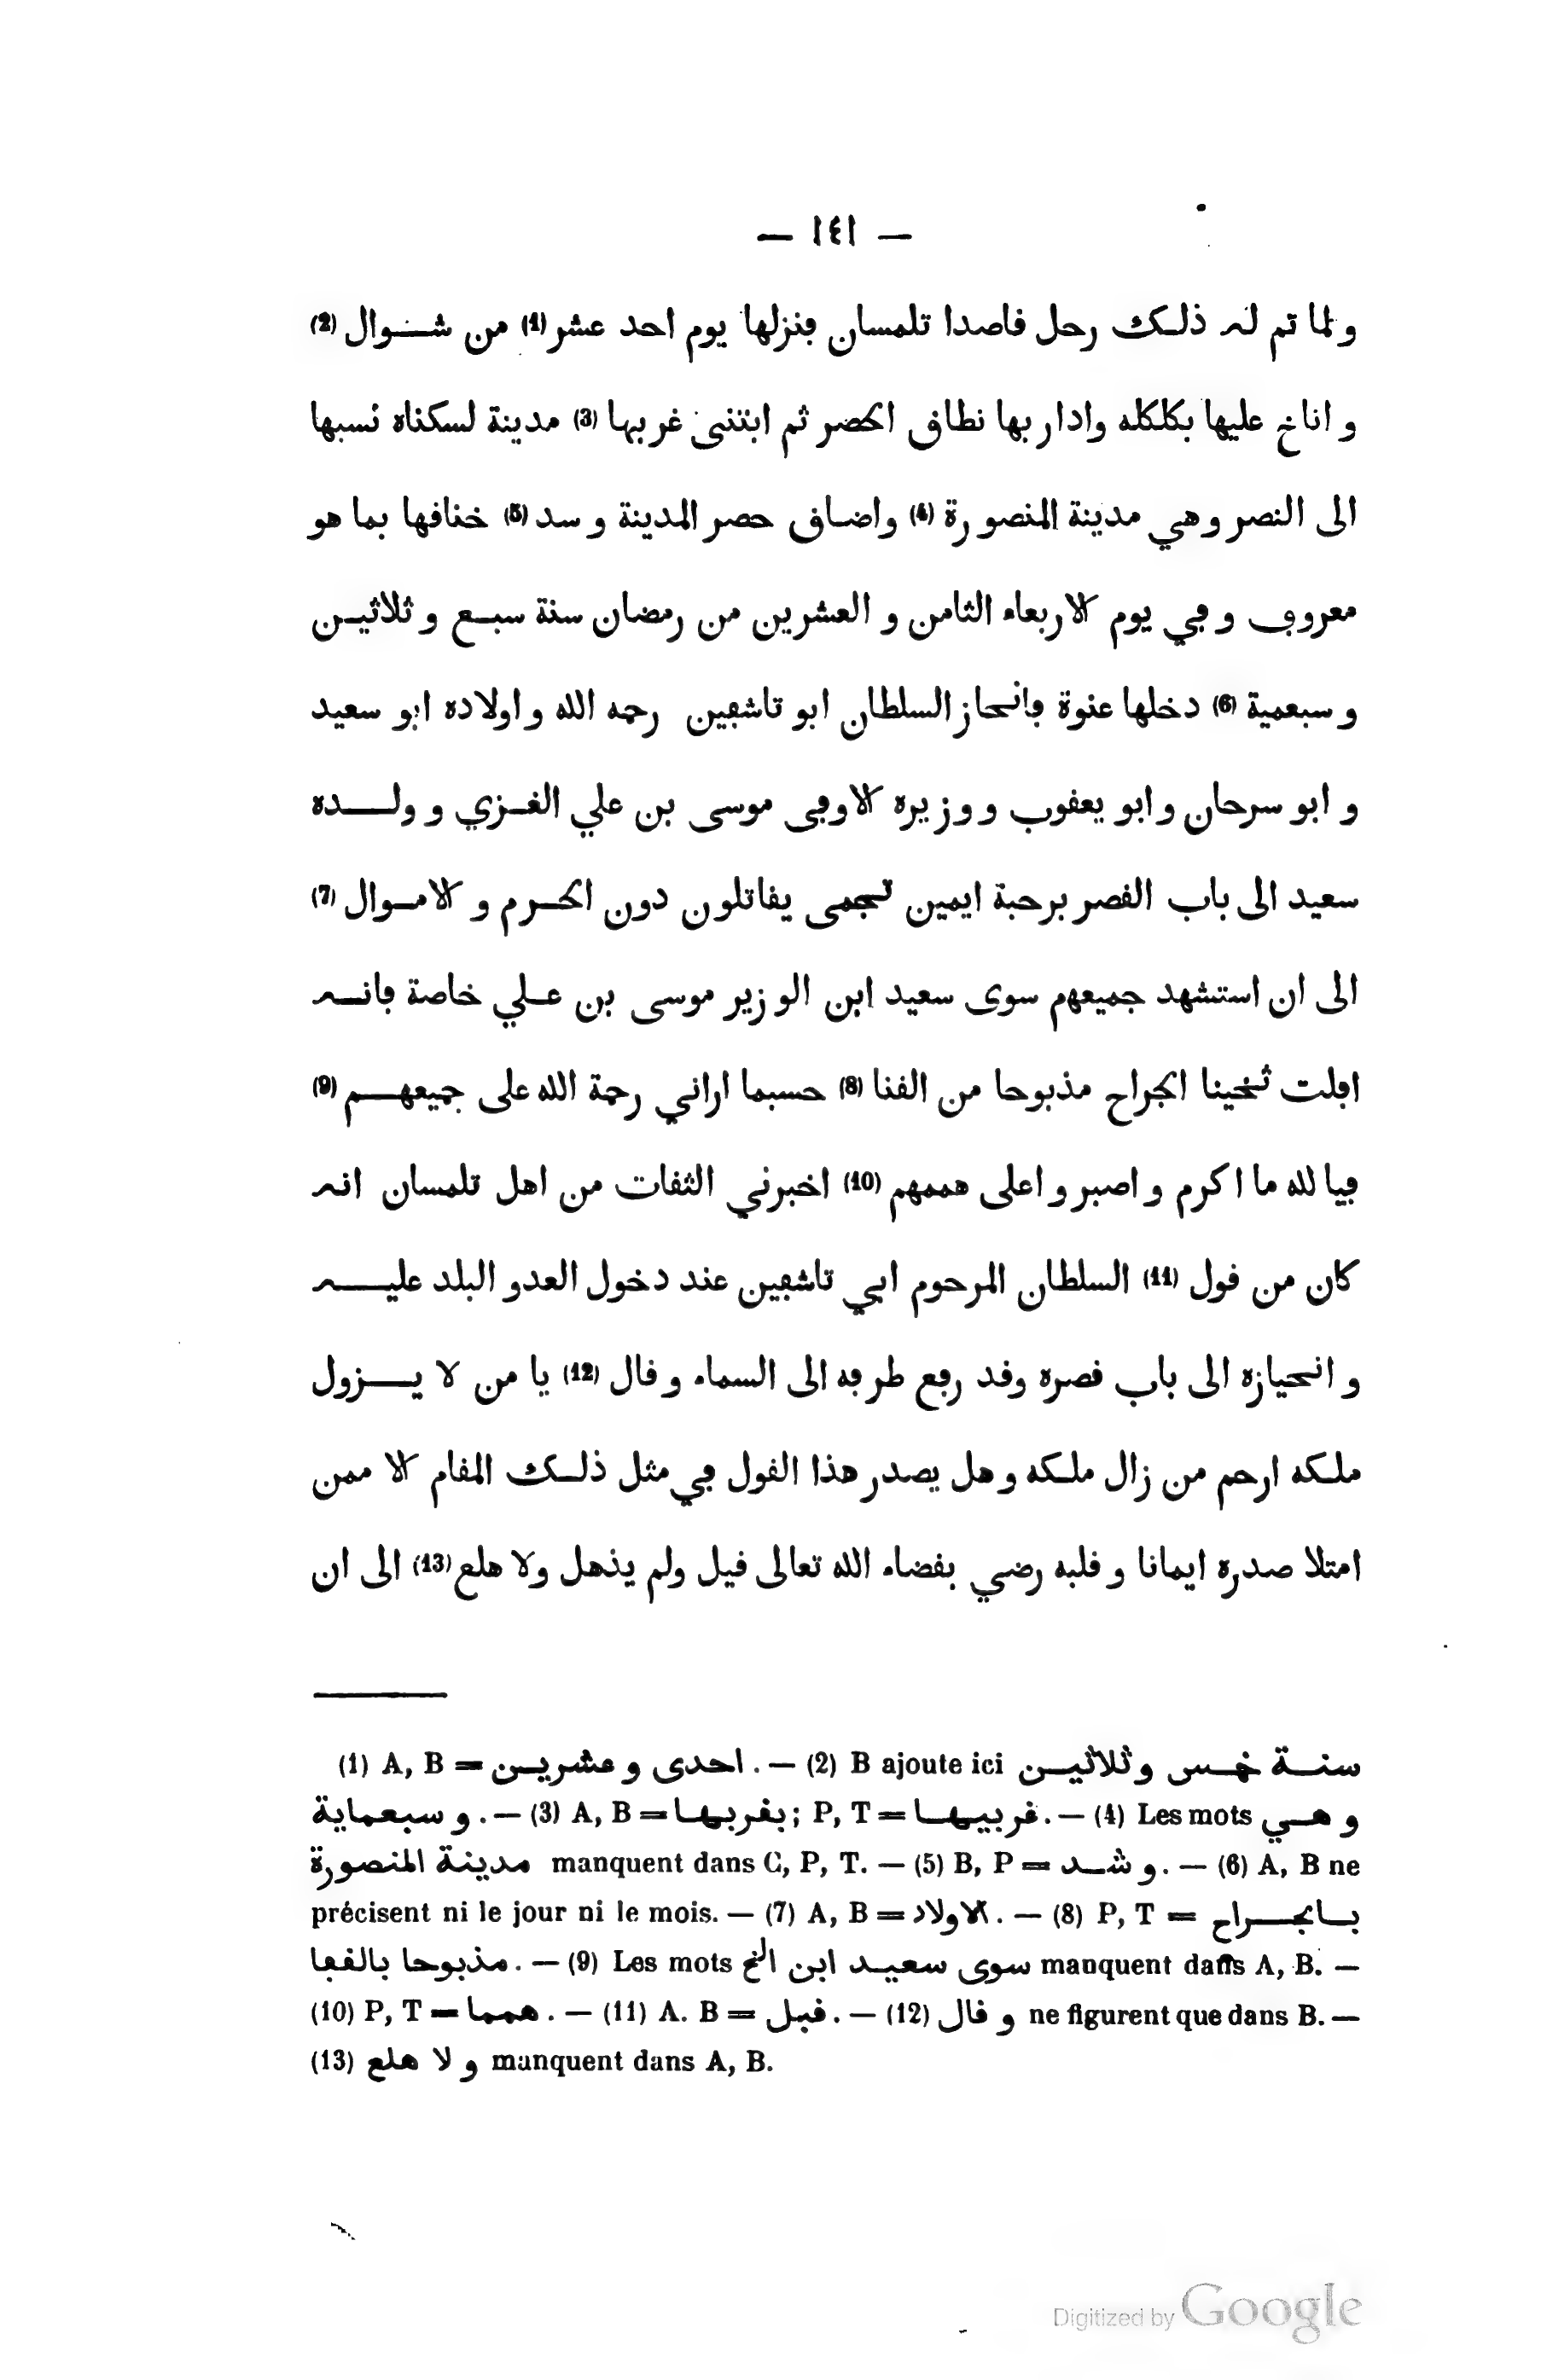 — ١٤١ —
ولما تم له ذلك رحل قاصدا تلمسان فنزلها يوم احد عشر (1) من شوال (2)
و اناخ عليها بكلكله وادار بها نطاق الحصر ثم ابتنى غربها (3) مدينة لسكناه نسبها
الى النصر وهي مدينة المنصورة (4) واضاق حصر المدينة وسد (5) خناقها بما هو
معروف وفي يوم الاربعاء الثامن و العشرين من رمضان سنة سبع و ثلاثين
و سبعمية (6) دخلها عنوة فانحاز السلطان ابو تاشفين رحمه الله و اولاده ابو سعيد
و ابو سرحان و ابو يعقوب ووزيره الاوفى موسى بن علي الغزي و ولده
سعيد الى باب القصر برحبة ايمين تجمى يقاتلون دون الحرم و الاموال (7)
الى ان استشهد جميعهم سوى سعيد ابن الوزير موسى بن علي خاصة فانه
افلت ثخينا الجراح مذبوحا من القفا (8) حسبما اراني رحمة الله على جميعهم (9)
فيا لله ما اكرم و اصبر و اعلى هممهم (10) اخبرني الثقات من اهل تلمسان انه
كان من قول (11) السلطان المرحوم ابي تاشفين عند دخول العدو البلد عليه
و انحيازه الى باب قصره وقد رفع طرفه الى السماء و قال (12) يا من لا يزول
ملكه ارحم من زال ملكه و هل يصدر هذا القول في مثل ذلك المقام الا ممن
امتلا صدره ايمانا و قلبه رضي بقضاء الله تعالى قيل ولم يذهل ولا هلع (13) الى ان
(1) A, B = احدى و عشرين. — (2) B ajoute ici سنة خمس وثلاثين
و سبعماية. — (3) A, B = بغربها; P, T = غربيها. — (4) Les mots و هي
مدينة المنصورة manquent dans C, P, T. — (5) B, P = و شد. — (6) A, B ne
précisent ni le jour ni le mois. — (7) A, B = الاولاد. — (8) P, T = بالجراح
مذبوحا بالقفا. — (9) Les mots سوى سعيد ابن الخ manquent dans A, B. —
(10) P, T = همما. — (11) A. B = قبل. — (12) و قال ne figurent que dans B. —
(13) و لا هلع manquent dans A, B.
Digitized by Google